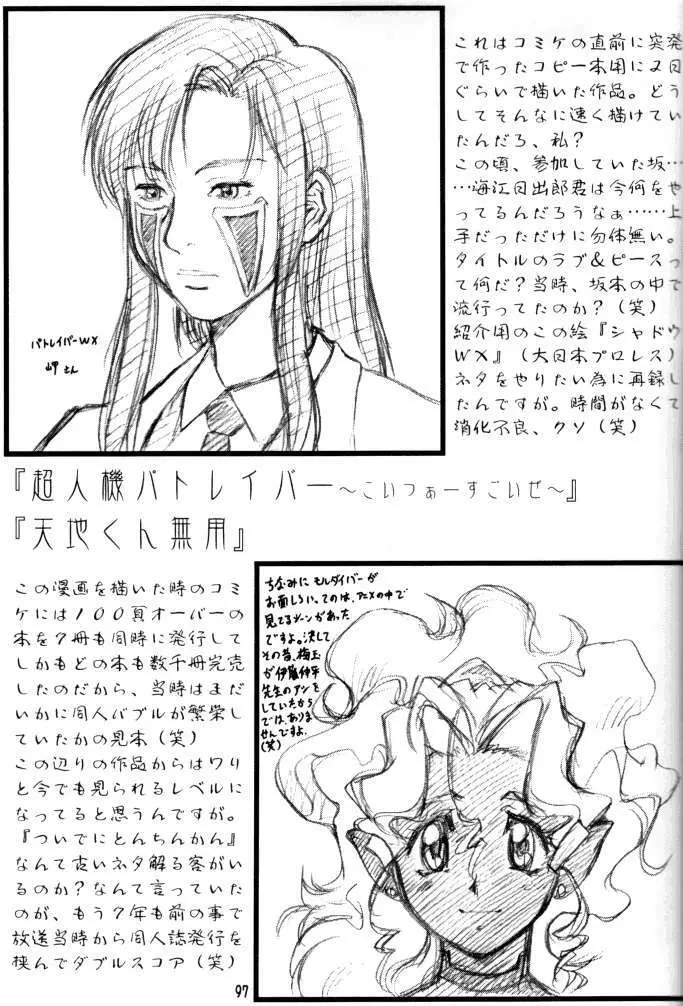 これはコミケの直前に突発
で作ったコピー本用に2日
ぐらいで描いた作品。どう
してそんなに速く描けてい
たんだろ、私?
この頃、参加していた坂…
…海江田出郎君は今何をや
ってるんだろうなぁ……上
手だっただけに勿体無い。
タイトルのラブ&ピースっ
て何だ?当時、坂本の中で
流行ってたのか?(笑)
紹介用のこの絵『シャドウ
WX』(大日本プロレス)
ネタをやりたい為に再録し
たんですが。時間がなくて
消化不良、クソ(笑)
パトレイバーWX
岬さん
『超人機パトレイバー~こいつぁーすごいぜ~』
『天地くん無用』
この漫画を描いた時のコミ
ケには100頁オーバーの
本を7冊も同時に発行して
しかもどの本も数千冊完売
したのだから、当時はまだ
いかに同人バブルが繁栄し
ていたかの見本(笑)
この辺りの作品からはワり
と今でも見られるレベルに
なってると思うんですが。
『ついでにとんちんかん』
なんて古いネタ解る客がい
るのか?なんて言っていた
のが、もう7年も前の事で
放送当時から同人誌発行を
挟んでダブルスコア(笑)
ちなみに モルダイバーが
お面しろい、てのは、アニメの中で
見てるシーンがあった
ですよ。決して
その昔、梅玉
が伊藤伸平
先生のアシを
していたから
では、ありま
せんですよ。
(笑)
97